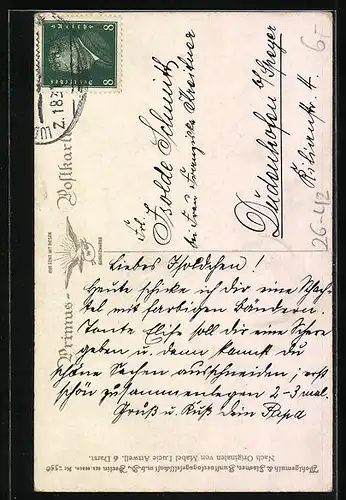 Primus-Postkarte
NUR ECHT MIT DIESEM
8 8
Deutsches
Frl.
Isolde Schmitt
bei Frau Franziska Streitner
Dudenhofen b/Speyer
Kilianstr. 4.
26-4/2
6,-
Liebes Isoldchen!
Heute schicke ich dir eine Schach-
tel mit farbigen Bändern.
Tante Elise soll dir eine Schere
geben u. dann kannst du
schöne Sachen ausschneiden; erst
schön zusammenlegen 2-3 mal.
Gruß u. Kuß dein Papa
Wohlgemuth & Lissner, Kunstverlagsgesellschaft m.b.H., Berlin Nr. 2350
Nach Originalen von Mabel Lucie Attwell. 6 Darst.